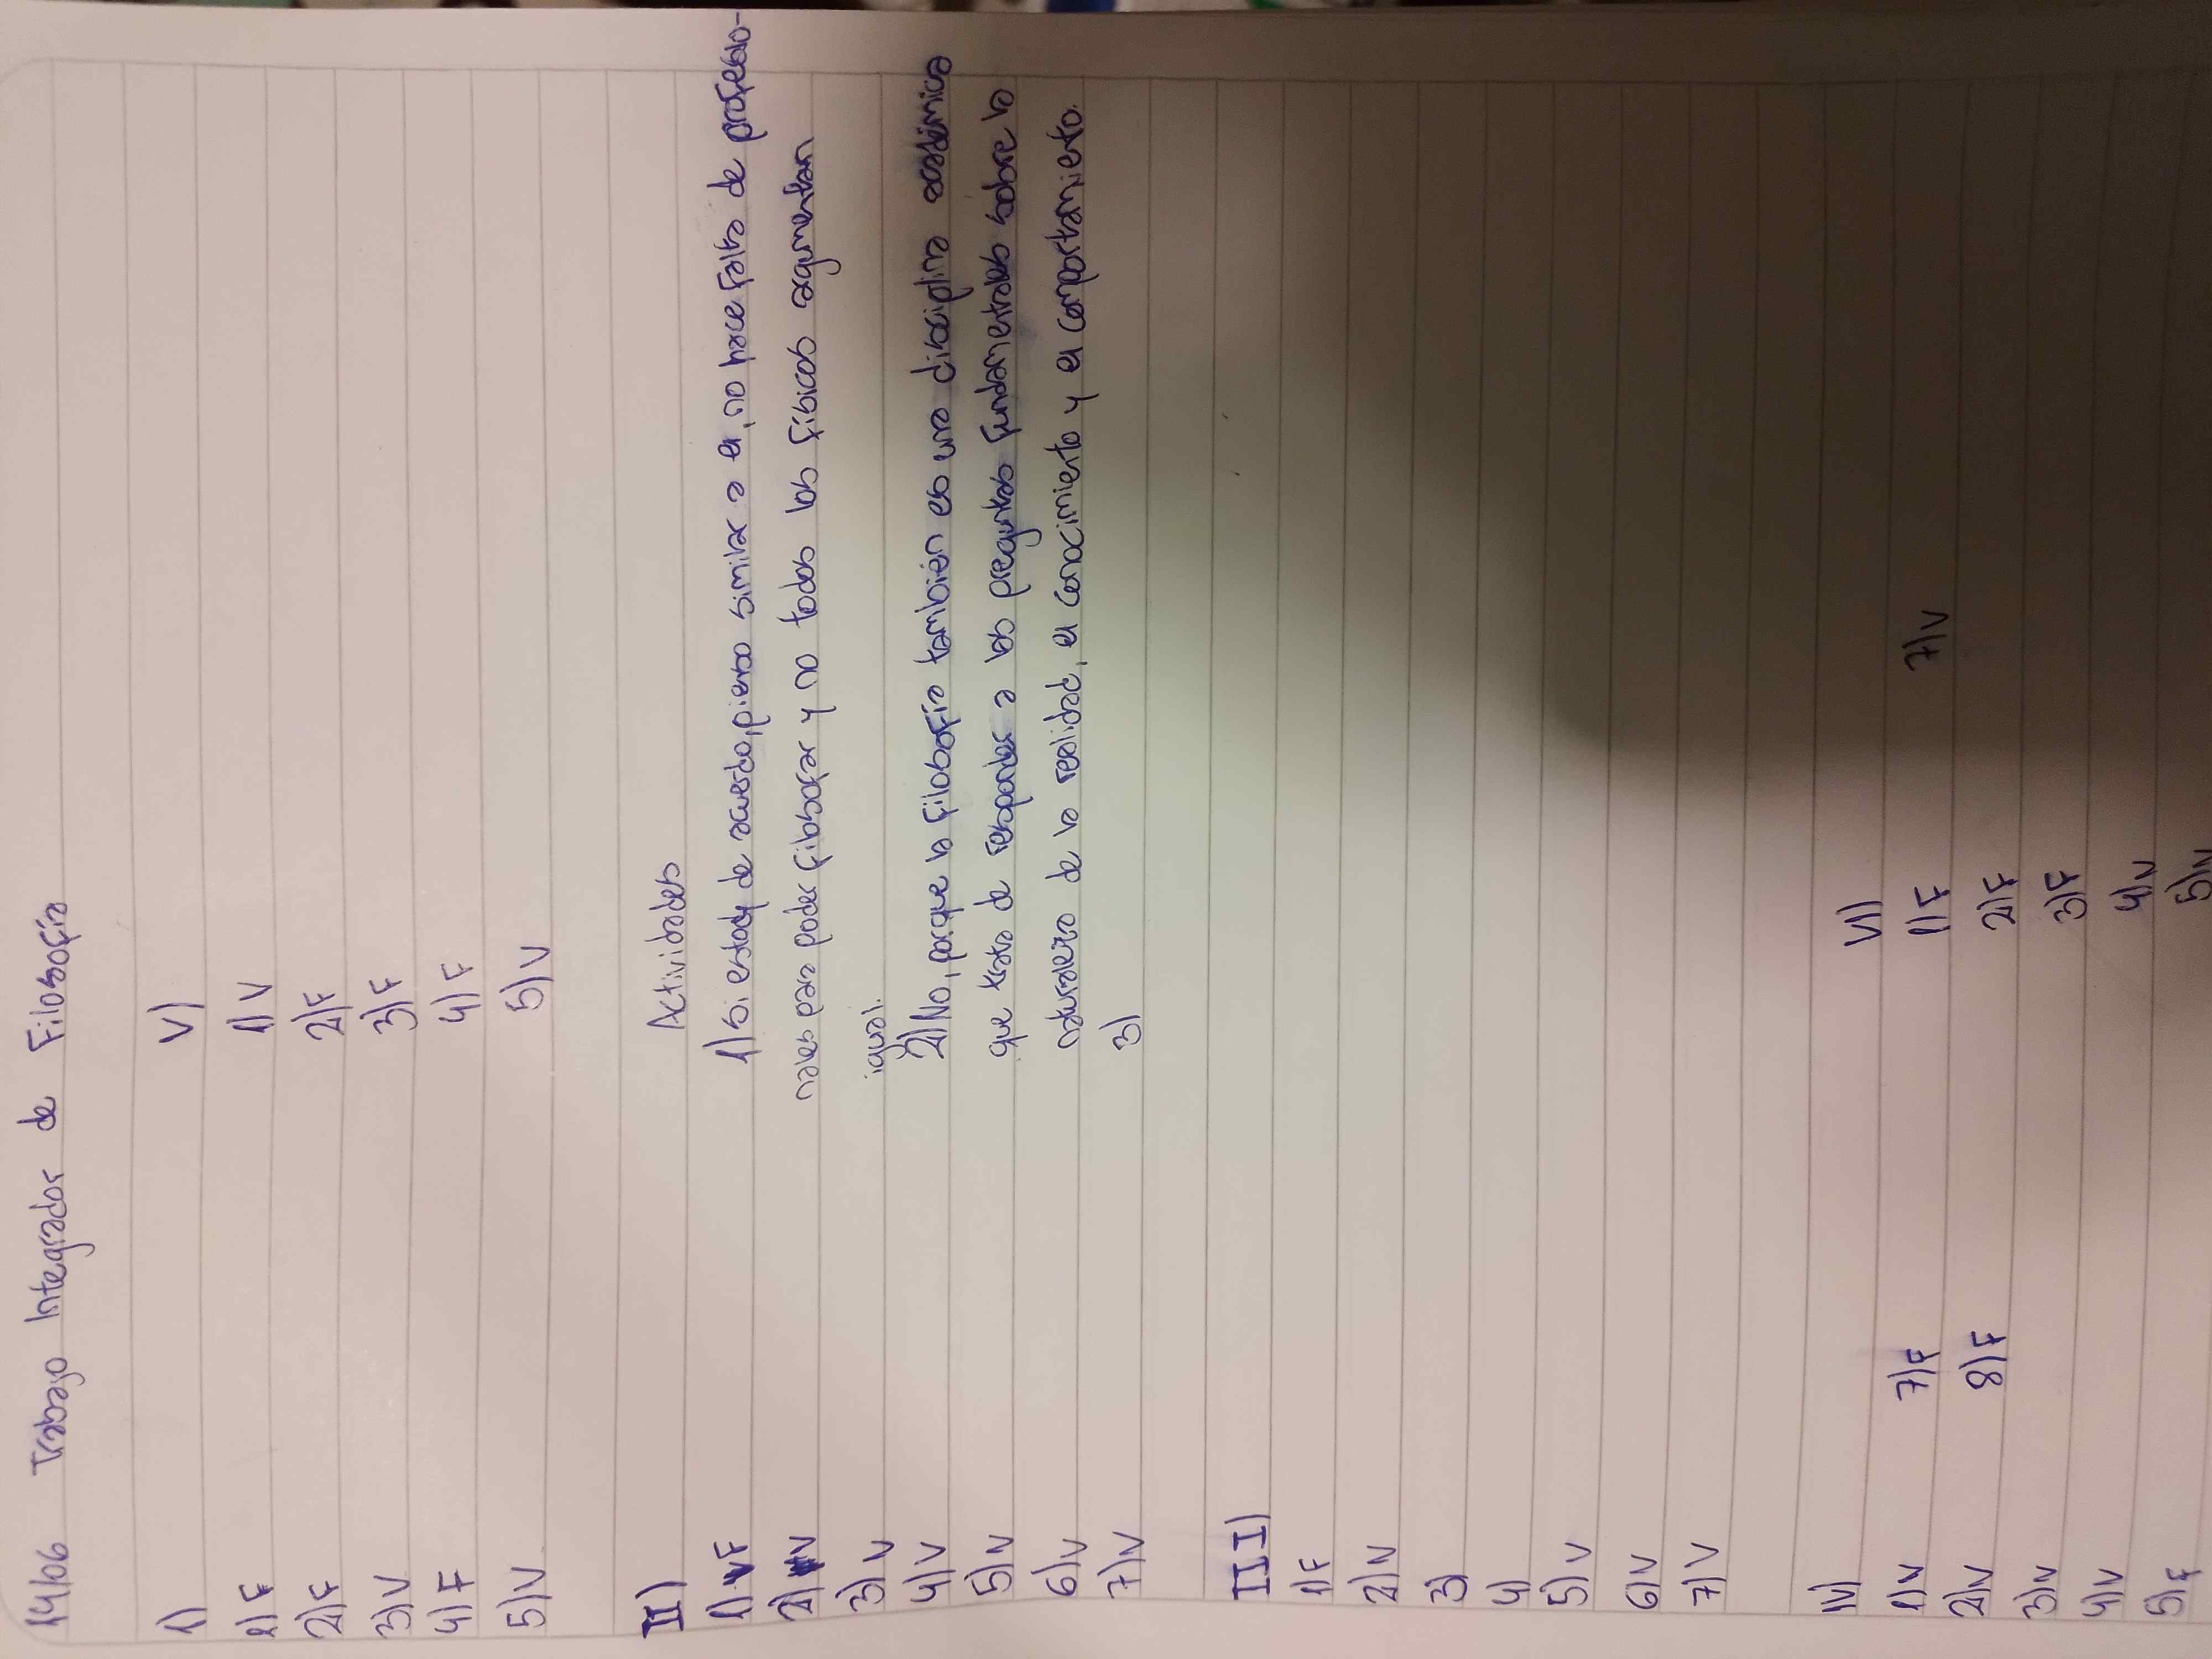 14/06 Trabajo Integrador de Filosofía
I)
1) F
2) F
3) V
4) F
5) V
II)
1) F
2) V
3) V
4) V
5) V
6) V
7) V
III)
1) F
2) V
3)
4)
5) V
6) V
7) V
IV)
1) V
2) V
3) V
4) V
5) F
7) F
8) F
V)
1) V
2) F
3) F
4) F
5) V
Actividades
1) Si estoy de acuerdo, pienso similar a el, no hace falta de profesio-
nales para poder filosofar y no todos los físicos argumentan
igual.
2) No, porque la filosofía también es una disciplina académica
que trata de responder a las preguntas fundamentales sobre la
naturaleza de la realidad, el conocimiento y el comportamiento.
3)
VI)
1) F
2) F
3) F
4) V
5) V
7) V